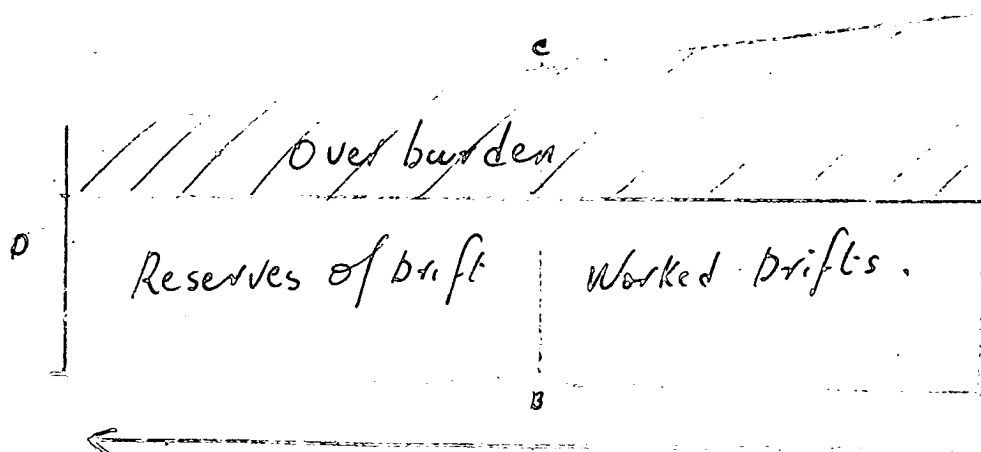 C
Overburden
D
Reserves of Drift
Worked Drifts.
B